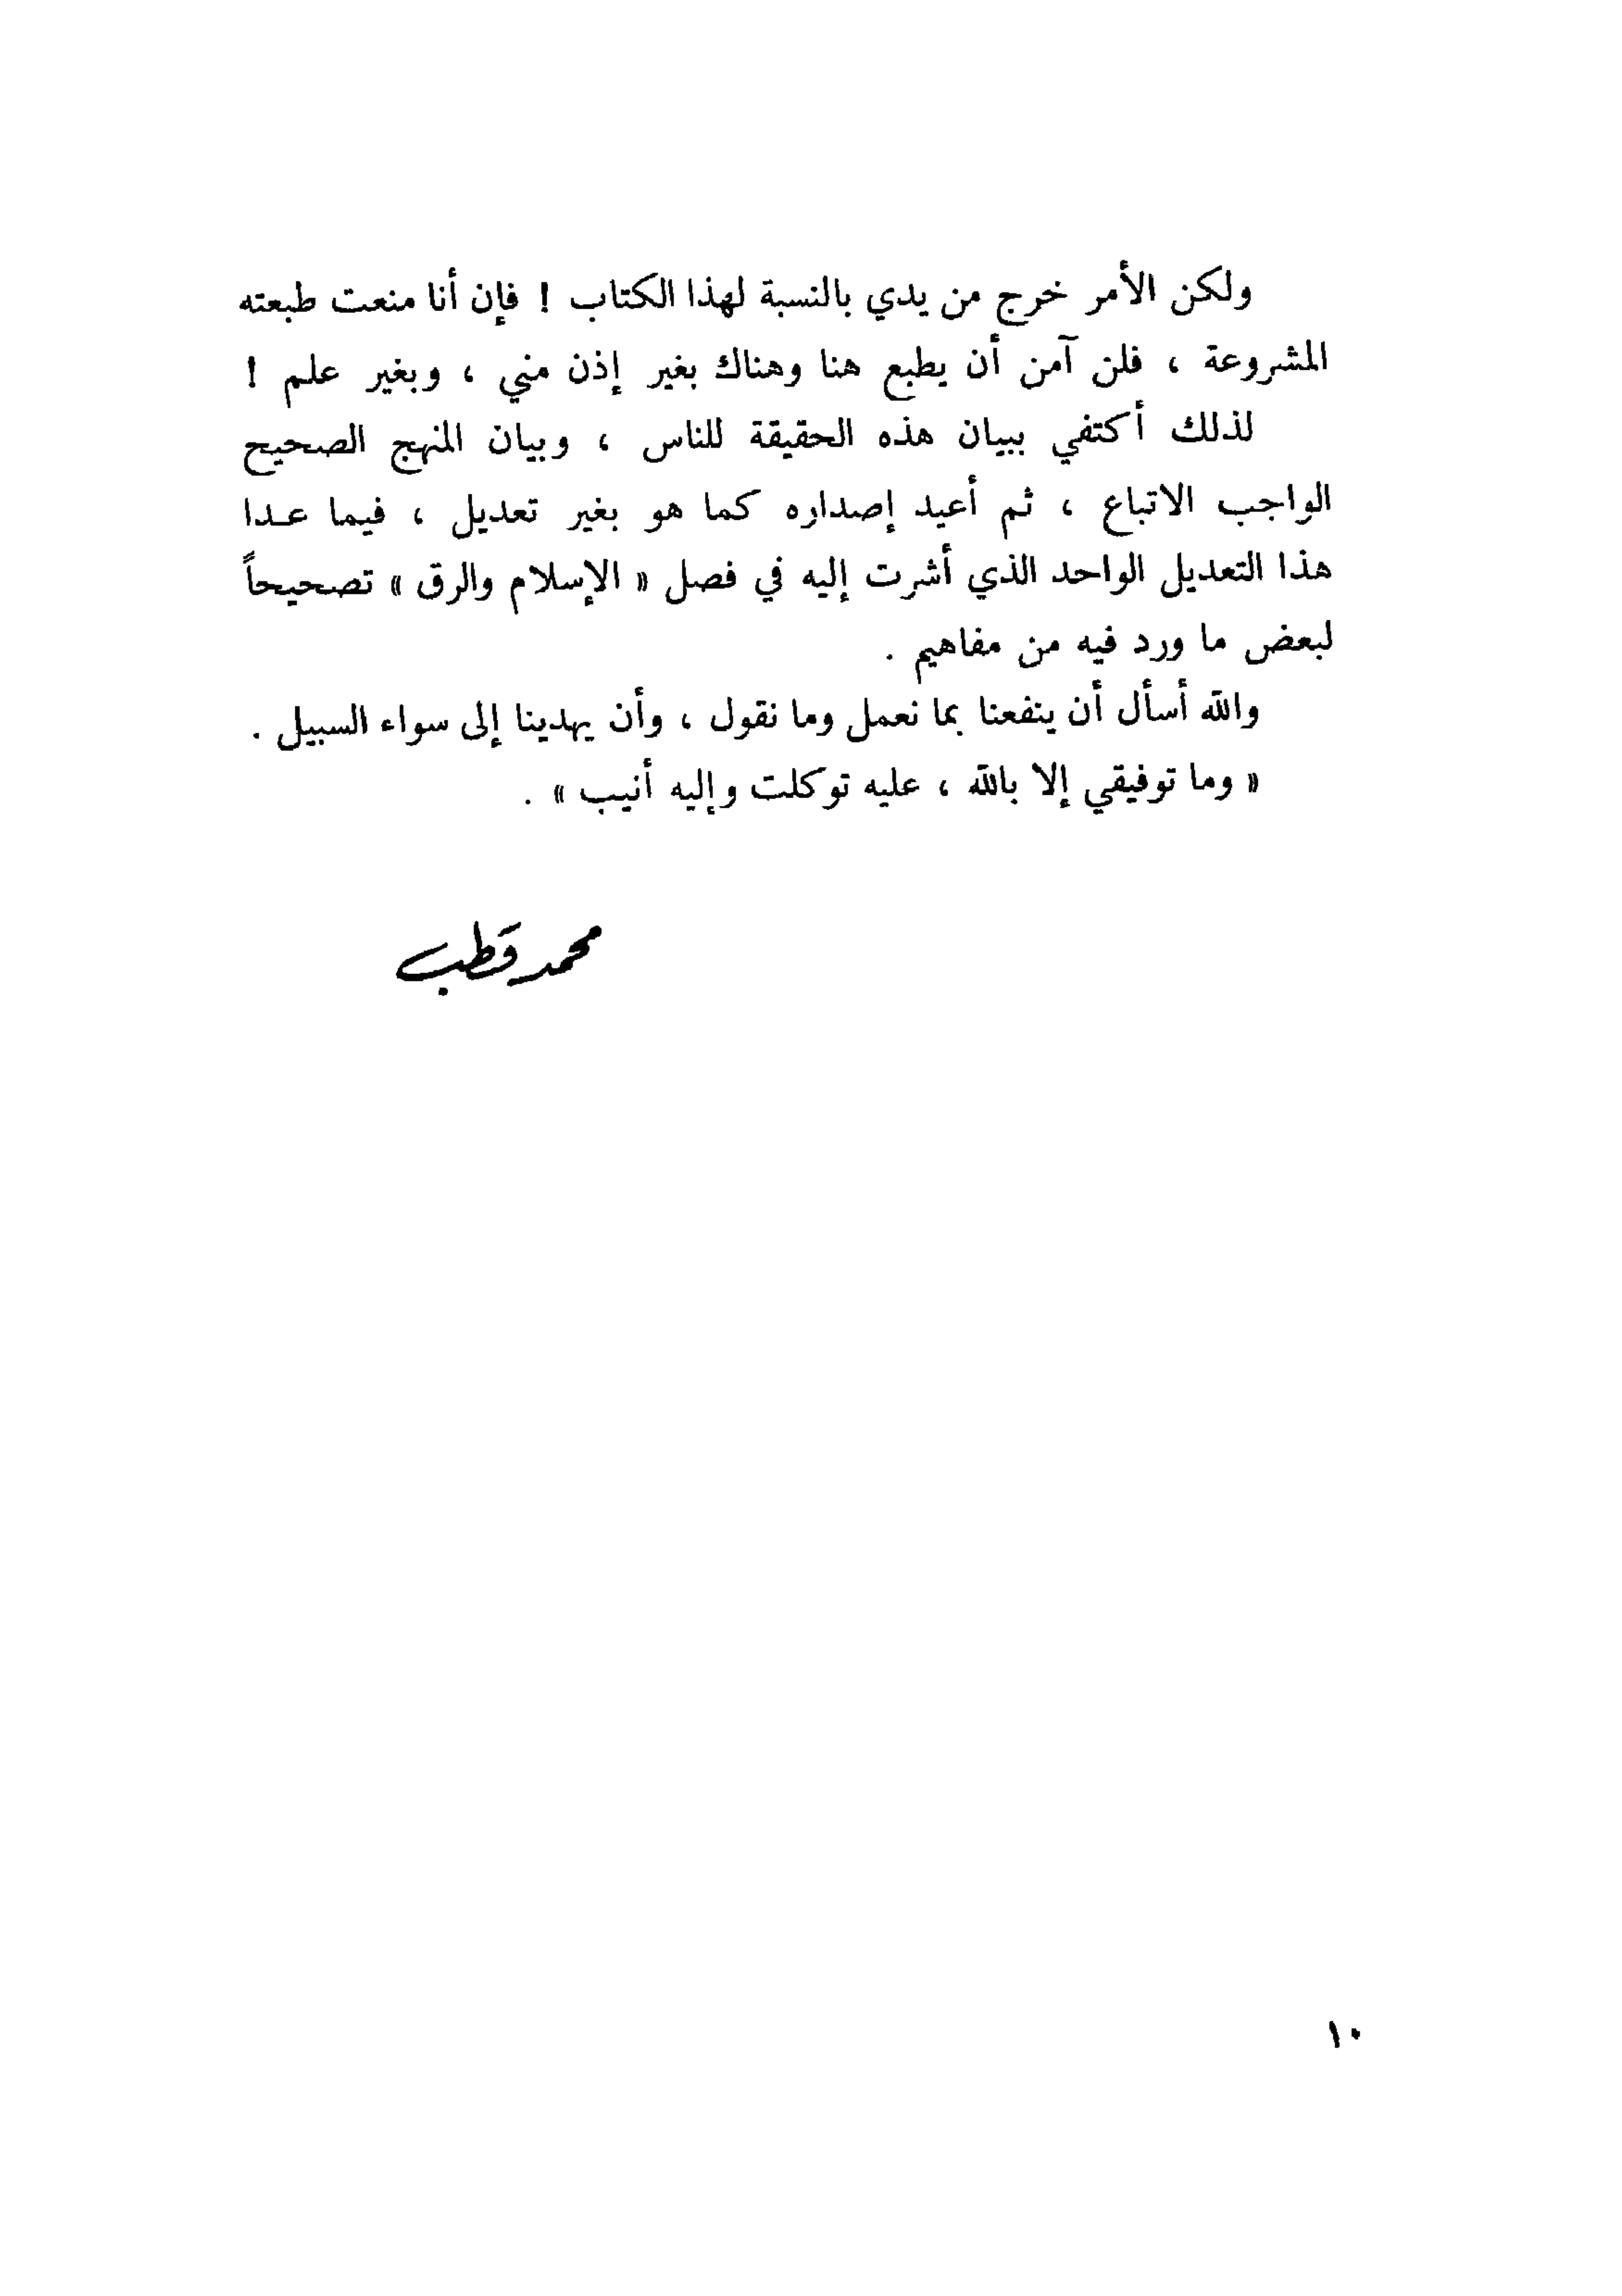 ولكن الأمر خرج من يدي بالنسبة لهذا الكتاب ! فإن أنا منعت طبعته
المشروعة ، فلن آمن أن يطبع هنا وهناك بغير إذن مني ، وبغير علم !
لذلك أكتفي ببيان هذه الحقيقة للناس ، وبيان المنهج الصحيح
الواجب الاتباع ، ثم أعيد إصداره كما هو بغير تعديل ، فيما عدا
هذا التعديل الواحد الذي أشرت إليه في فصل « الإسلام والرق » تصحيحاً
لبعض ما ورد فيه من مفاهيم .
والله أسأل أن ينفعنا بما نعمل وما نقول ، وأن يهدينا إلى سواء السبيل .
« وما توفيقي إلا بالله ، عليه توكلت وإليه أنيب » .
محمد قطب
١٠